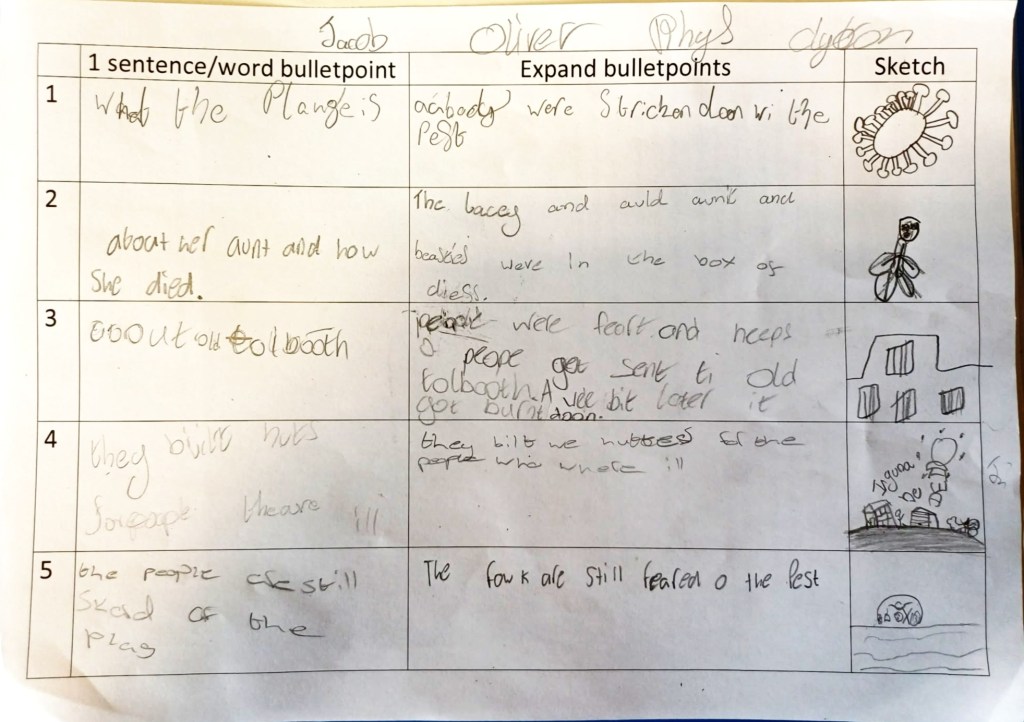 Jacob Oliver Rhys dyson
1 sentence/word bulletpoint
Expand bulletpoints
Sketch
1
What the Plangeis
aabody were Strickendoon wi the
Pest
2
about her aunt and how
She died.
The bacey and auld aunt and
beasties were in the box of
diess.
3
about old tolbooth
people were feart and heeps
o peope get sent ti old
tolbooth. A wee bit later it
got burnt doon.
4
they built huts
forpeaple theare ill
they bilt we huttees for the
people who where ill
Im gunna
Be
DEID
5
the people are still
Skard of the
Plag
The fowk are still feared o the Pest